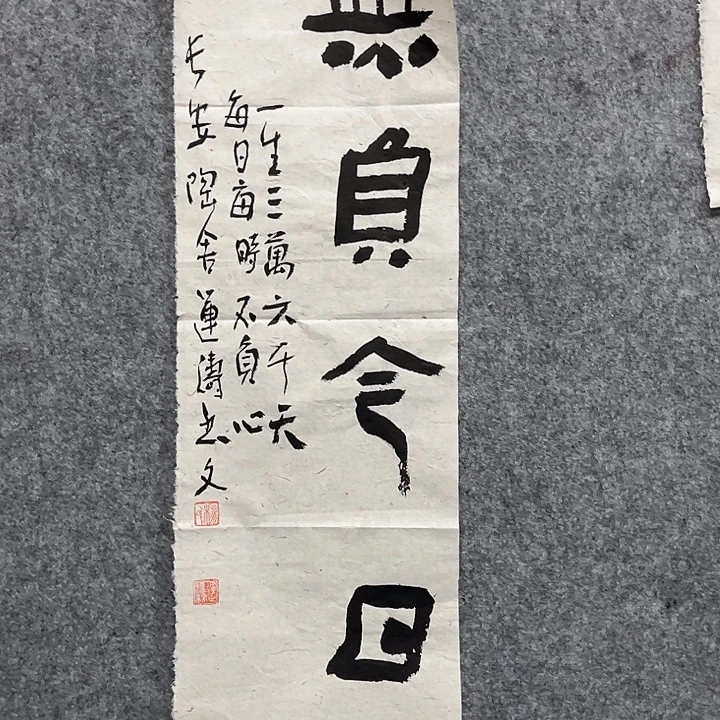 無負今日
一生三萬六千天
每日每時不負心
長安陶舍運濤書文